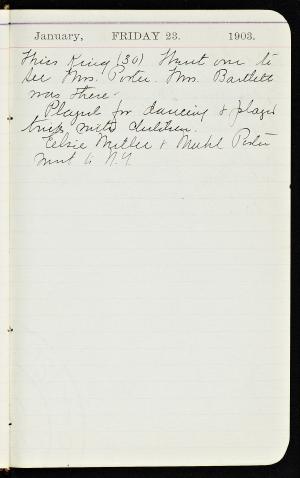 January, FRIDAY 23. 1903.
King (30) Went over to
see Mrs. Porter. Mrs. Bartlett
was there.
Played for dancing & played
tricks with children.
Elsie Miller & Mabel Porter
went to N.Y.